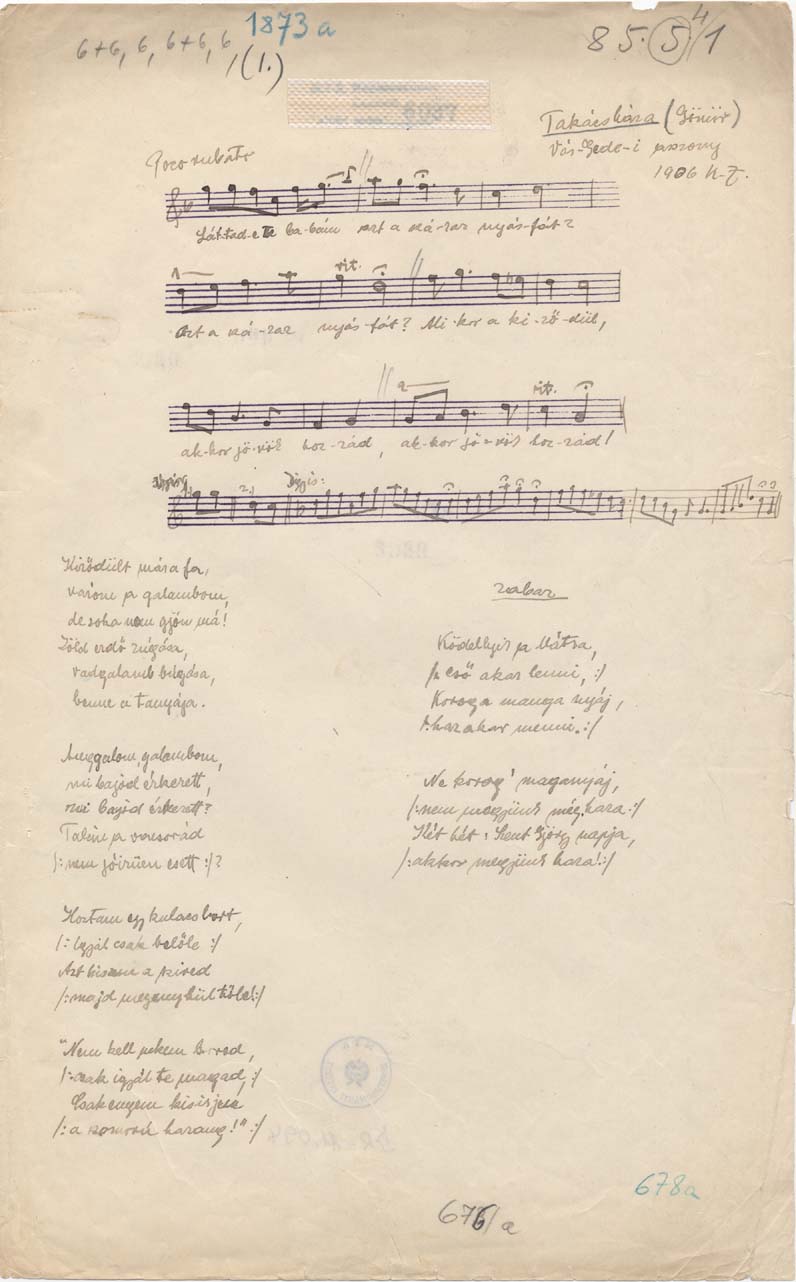 6+6, 6, 6+6, 6, (1.)
1873 a
85.5/1
4
Takácsháza (Gömör)
Vás-Gede-i asszony
1906
Poco rubato
Lát-tad-e te ba-bám azt a szá-raz nyás-fát?
rit.
Azt a szá-raz nyás-fát? Mi-kor a ki-ző-dül,
2
rit.
ak-kor jö-vök hoz-zád, ak-kor jö-vök hoz-zád!
2.)
Kiződült mára fa,
várom a galambom,
de soha nem gyön má!
Zöld erdő zúgása,
vadgalamb búgása,
benne a tanyája.
Angyalom, galambom,
mi bajod érkezett,
mi bajod érkezett?
Talán a vacsorád
/: nem jóízűen esett :/?
Hoztam egy kulacs bort,
/: Igyál csak belőle :/
Azt hiszem a szived
/: majd megenyhül tőle! :/
"Nem kell nekem borod,
/: csak igyál te magad, :/
Csak engem kisirjen
/: a szomorú harang!" :/
Ködellyik a Mátra,
/: eső akar lenni, :/
Korog a manga nyáj,
/: haza akar menni. :/
Ne korog' maganyáj,
/: nem megyünk még haza :/
Két hét: Szent György napja,
/: akkor megyünk haza! :/
678a
676/a